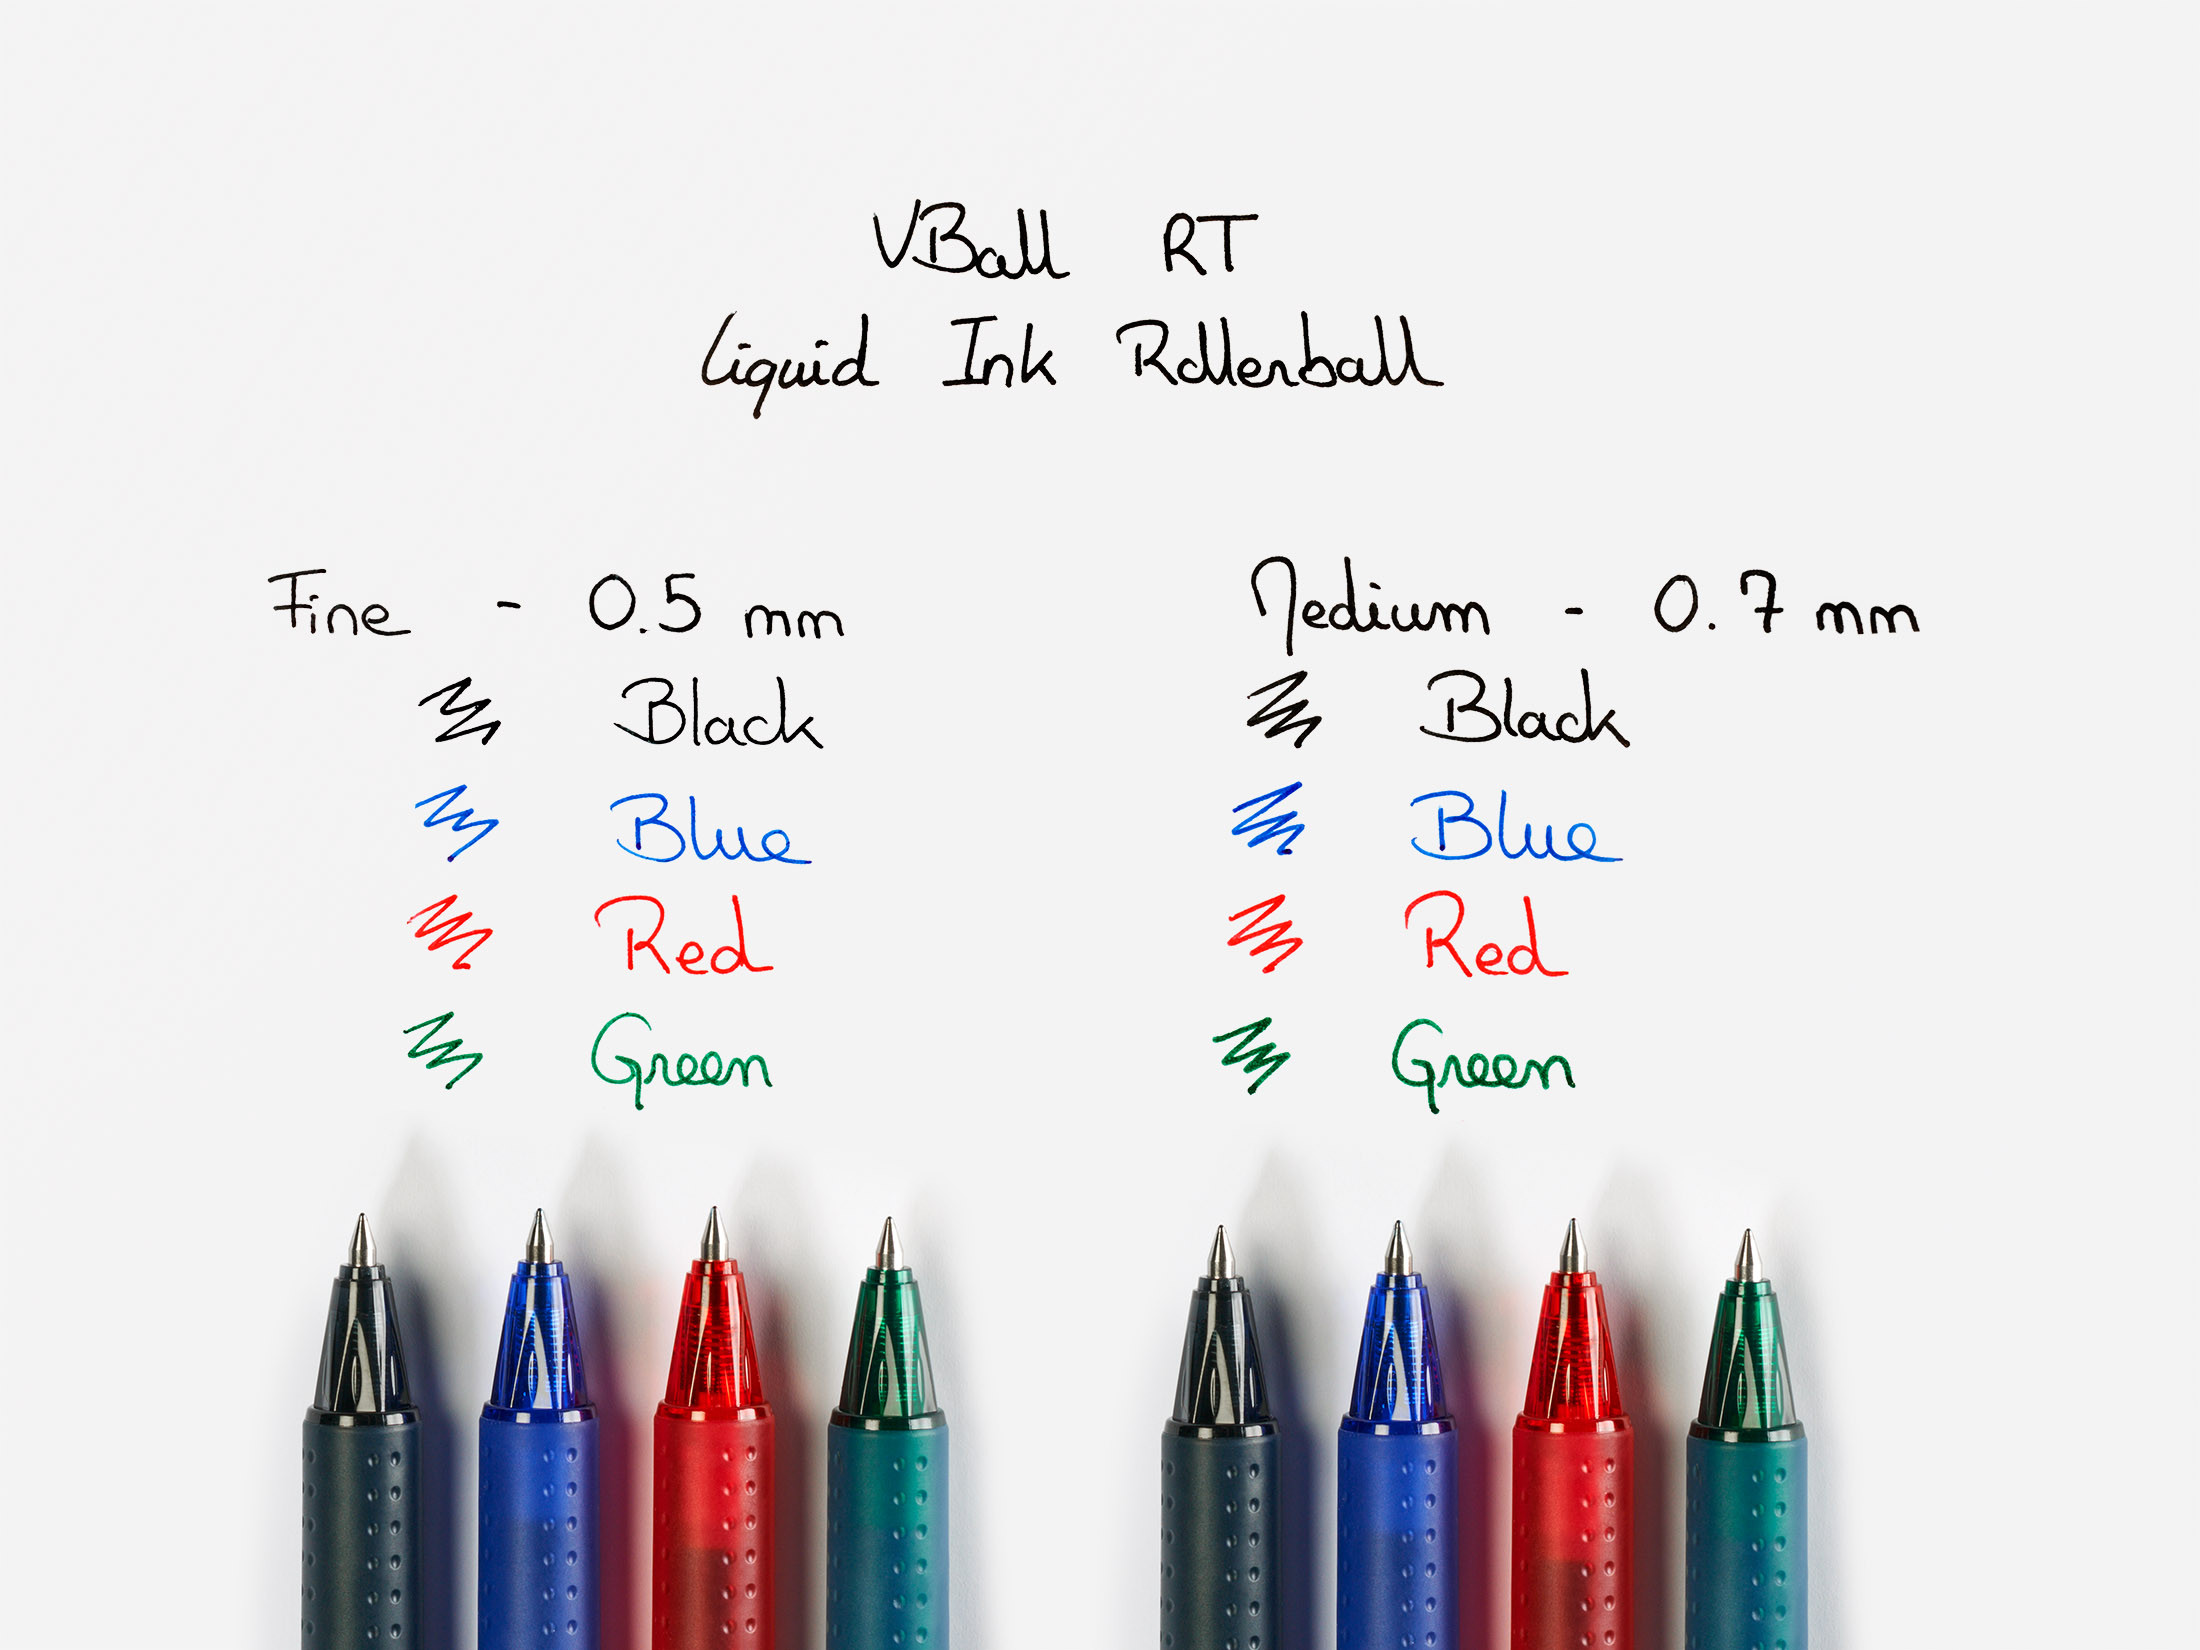 VBall RT
Liquid Ink Rollerball
Fine - 0.5 mm
Black
Blue
Red
Green
Medium - 0.7 mm
Black
Blue
Red
Green